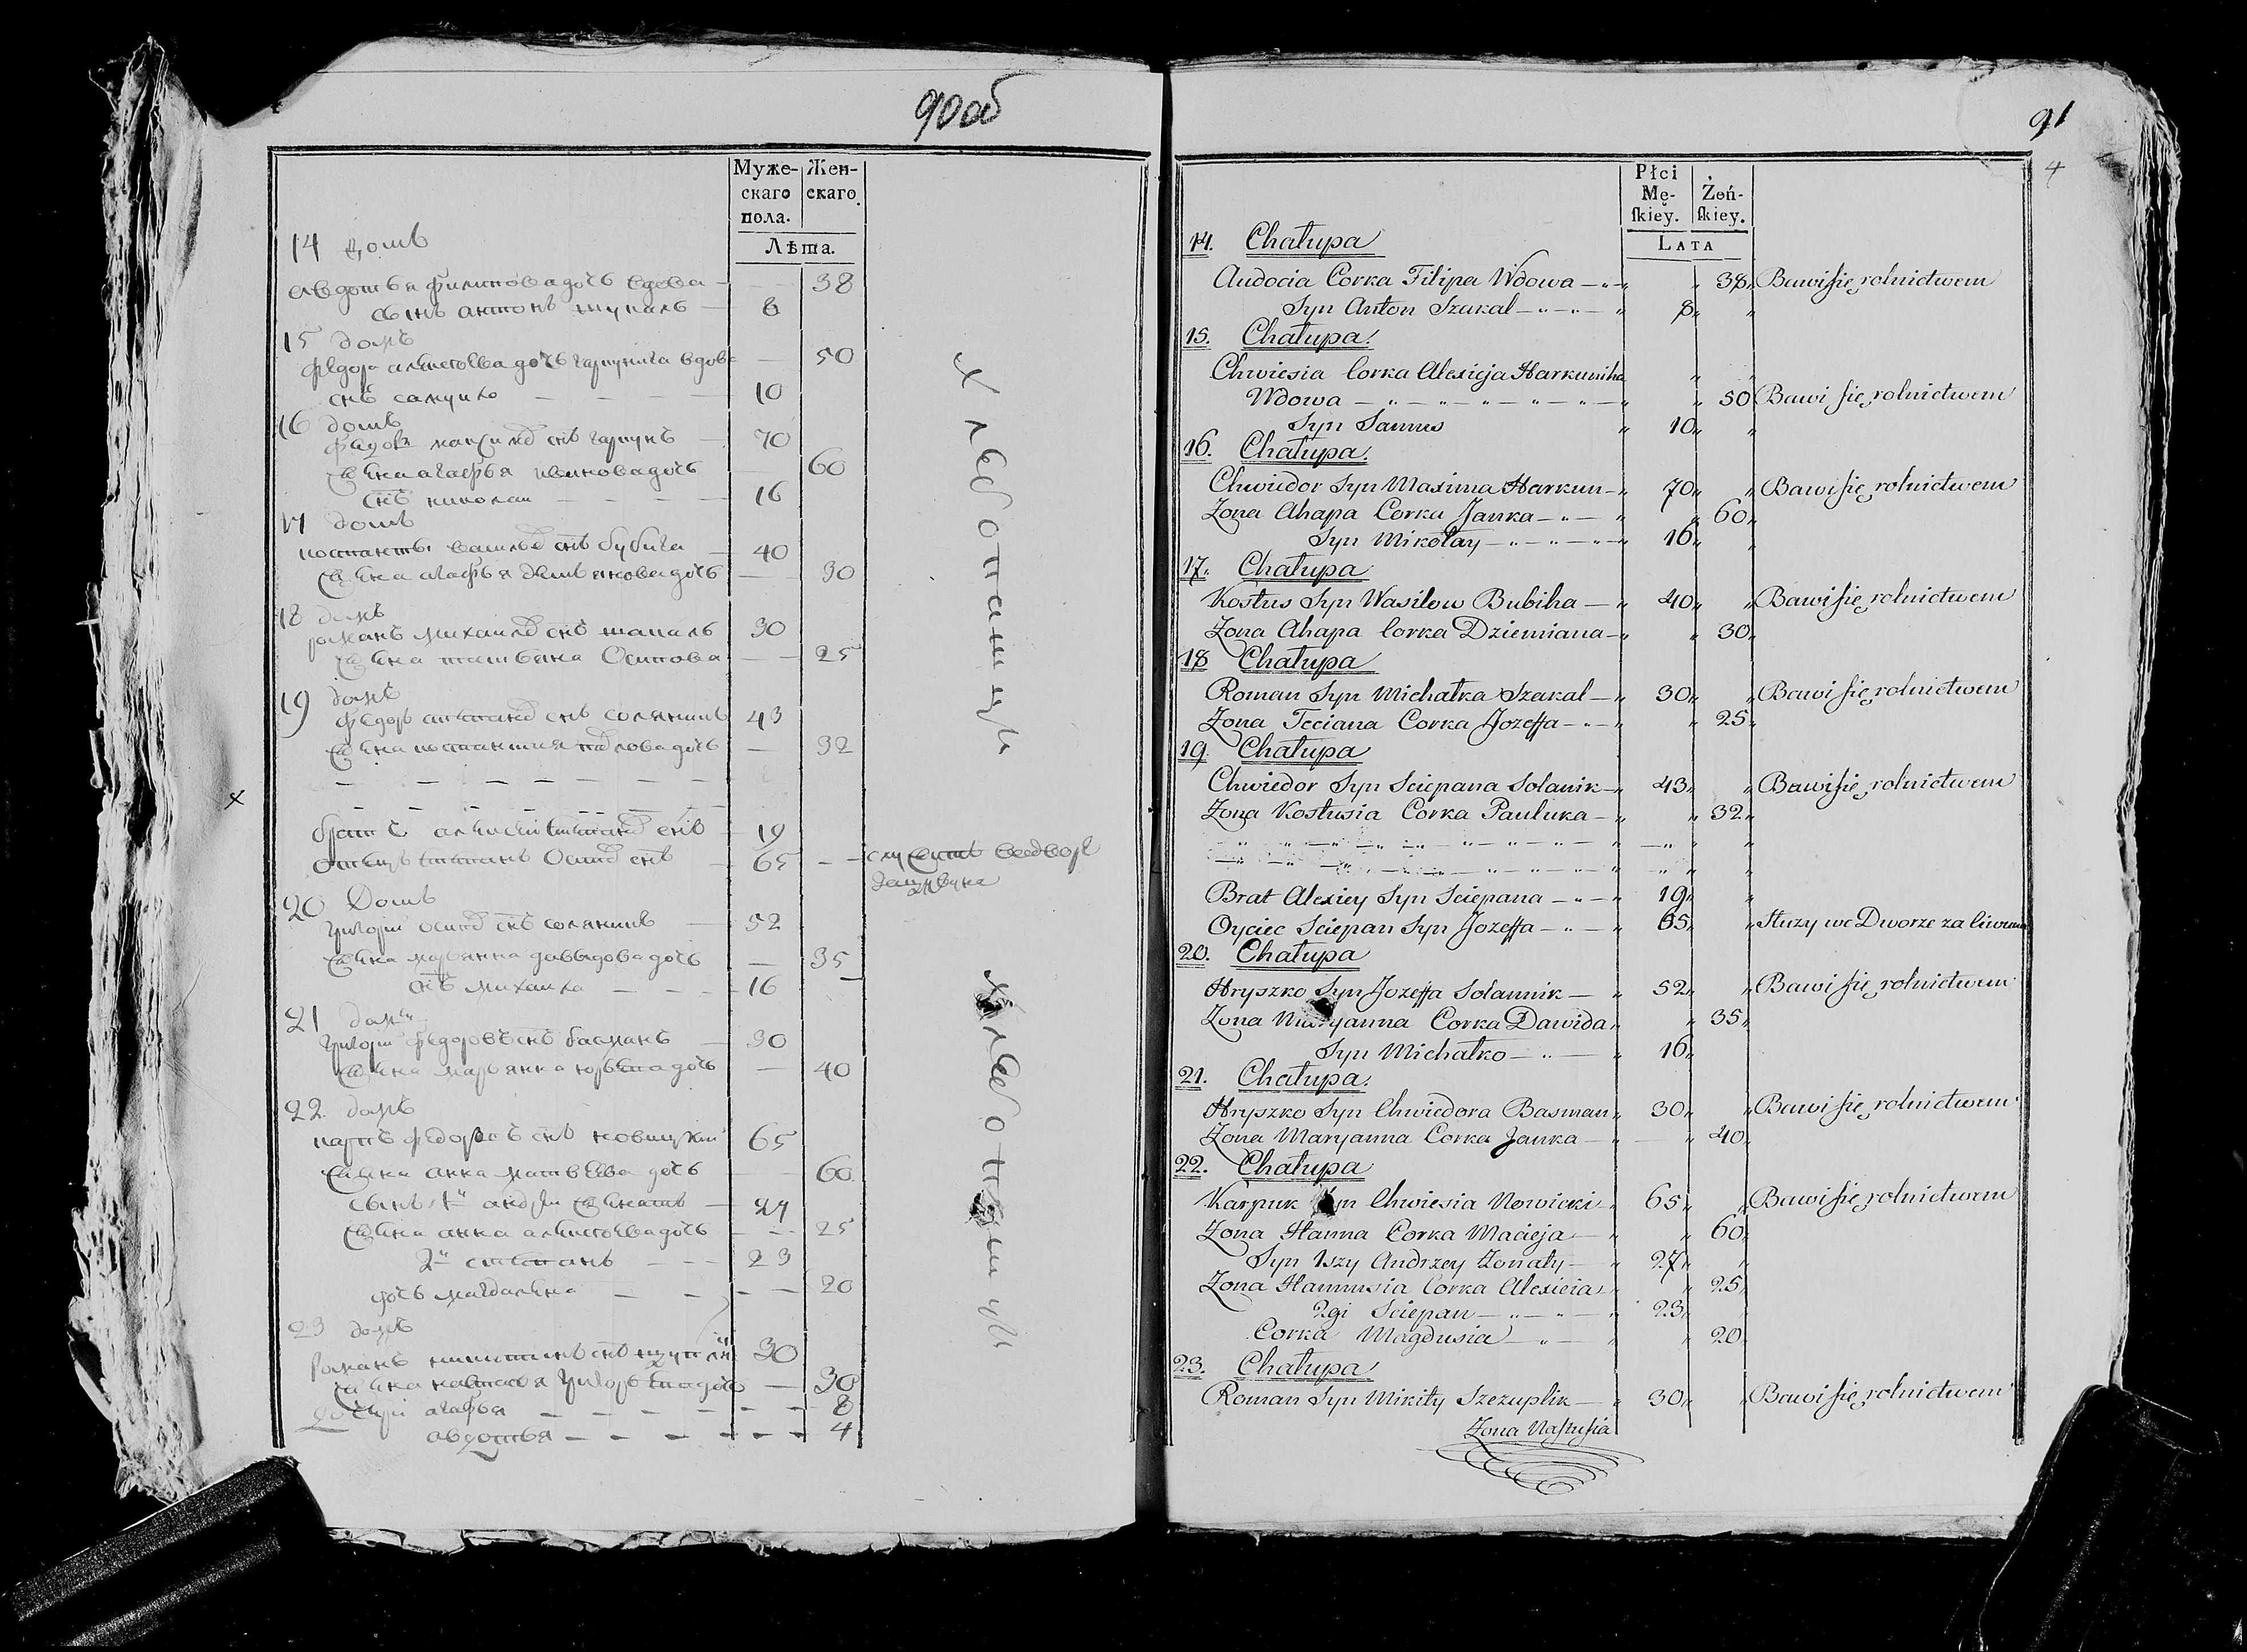 90 об
Муже-
скаго
пола.
Жен-
скаго.
Лѣта.
14 домъ
евдотья филипова дочь вдова — 38
сынъ антонъ — 8
15 домъ
федора дочь вдова — 50
снъ самуило — — — 10
16 домъ
федор снъ гаркунъ — 70
жена агафья дочь 60
снъ николаи — — — 16
17 домъ
снъ бубига — 40
жена агафья демьянова дочь — 30
18 домъ
романъ михаилов снъ шакаль 30
жена татьяна Осипова — 25
19 домъ
федоръ степанов снъ солянникъ 43
жена дочь — 32
— — — — — — —
— — — — — — —
братъ алексеи степанов снъ 19
отецъ степанъ Осипов снъ — 65 — служитъ
20 Домъ
григори осипов снъ солянникъ — 52
жена марьянна давыдова дочь — 35
снъ михаила — — — 16
21 домъ
григори федоровъ снъ басманъ — 30
жена марьянна дочь — 40
22 домъ
карпъ федоровъ снъ новицкии 65
жена анна матвеева дочь — 60
сынъ 1й андреи женатъ — 27
жена анна алексеева дочь — — 25
2й степанъ — — — 23
дочь магдалена — — — — 20
23 домъ
романъ никитинъ снъ 30
жена настасья дочь — 30
дочери агафья — — — — — — 8
авдотья — — — — — — 4
хлебопашцы
хлебопашцы
91
4
Płci
Mę-
ſkiey.
Żeń-
ſkiey.
LATA
14. Chałupa
Audocia Corka Filipa Wdowa — 38 Bawi się rolnictwem
Syn Anton Szakal — 8
15. Chałupa
Chwiesia Corka Alexieja Harkuniha
Wdowa — 50 Bawi się rolnictwem
Syn Samus 10
16. Chałupa
Chwiedor Syn Maxima Harkun — 70 Bawi się rolnictwem
Zona Ahapa Corka Janka — 60
Syn Mikołay — 16
17. Chałupa
Kostus Syn Wasilow Bubiha — 40 Bawi się rolnictwem
Zona Ahapa Corka Dziemiana — 30
18 Chałupa
Roman Syn Michałka Szakal — 30 Bawi się rolnictwem
Zona Teciana Corka Jozeffa — 25
19. Chałupa
Chwiedor Syn Sciepana Solanik — 43 Bawi się rolnictwem
Zona Kostusia Corka Pauluka — 32
Brat Alexiey Syn Sciepana — 19
Oyciec Sciepan Syn Jozeffa — 65 Służy we Dworze za
20. Chałupa
Hryszko Syn Jozeffa Solannik — 52 Bawi się rolnictwem
Zona Maryanna Corka Dawida 35
Syn Michałko — 16
21. Chałupa
Hryszko Syn Chwiedora Basman 30 Bawi się rolnictwem
Zona Maryanna Corka Janka — 40
22. Chałupa
Karpuk Syn Chwiesia Nowicki 65 Bawi się rolnictwem
Zona Hanna Corka Macieja — 60
Syn 1szy Andrzey żonaty — 27
Zona Hannusia Corka Alexieia 25
2gi Sciepan — 23
Corka Magdusia — 20
23. Chałupa
Roman Syn Mikity Szczuplik — 30 Bawi się rolnictwem
Zona Nastusia